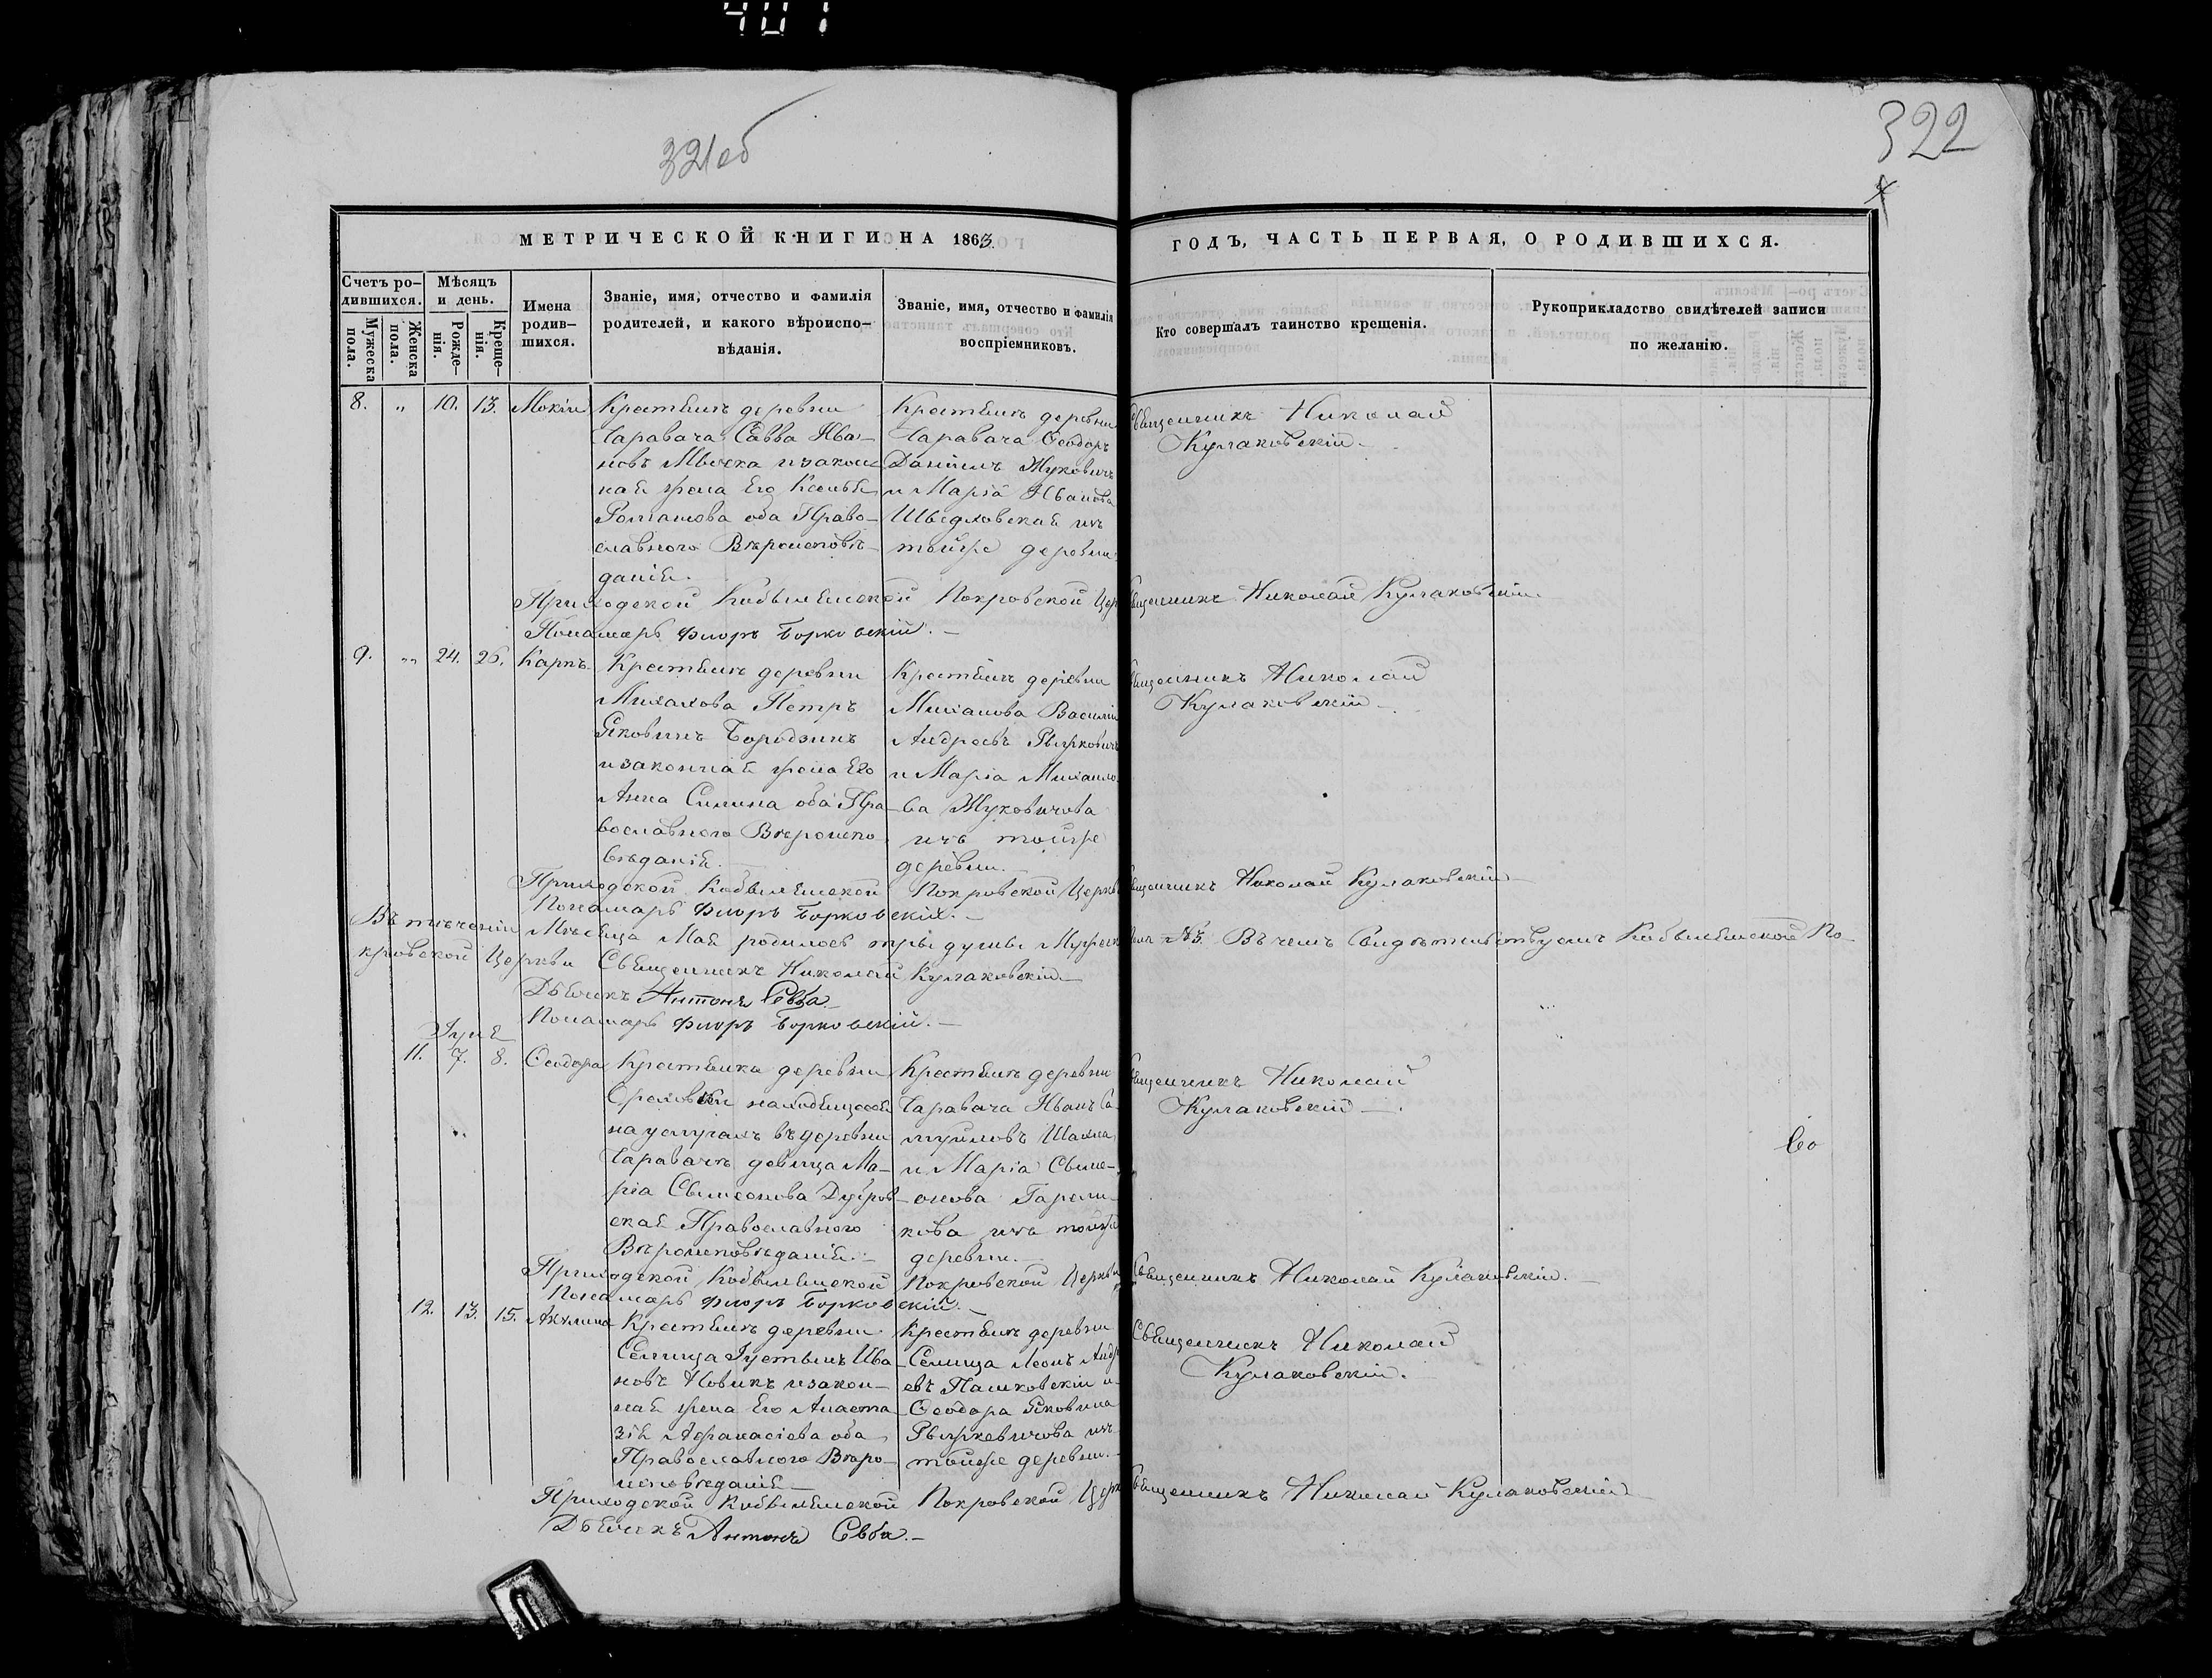 401
321об
322
МЕТРИЧЕСКОЙ КНИГИ НА 1863. ГОДЪ, ЧАСТЬ ПЕРВАЯ, О РОДИВШИХСЯ.
Счетъ ро-
дившихся.
Мужеска пола.
Женска пола.
Мѣсяцъ
и день.
Рожде-
нія.
Креще-
нія.
Имена
родив-
шихся.
Званіе, имя, отчество и фамилія
родителей, и какого вѣроиспо-
вѣданія.
Званіе, имя, отчество и фамилія
воспріемниковъ.
Кто совершалъ таинство крещенія.
Рукоприкладство свидѣтелей записи
по желанію.
8. „ 10. 13. Мокій
Крестьянъ деревни
Чаравача Савва Ива-
новъ и закон-
ная жена Его Ксенья
Романова оба Право-
славнаго Вѣроисповѣ-
данія.
Крестьянъ деревни
Чаравача Ѳеодоръ
Даніилъ Жуковичъ
и Марія Иванова
изъ
тойже деревни
Священникъ Николай
Кулаковскій
Приходской Кобыльянской Покровской Цер Священникъ Николай Кулаковскій
Пономарь Флоръ Борковскій.
9. „ 24. 26. Карпъ
Крестьянъ деревни
Михалова Петръ
Яковинъ Бородзинъ
и законная жена Его
Анна Силина оба Пра-
вославнаго Вѣроиспо-
вѣданія.
Крестьянъ деревни
Михалова Василій
Андреевъ Рыжковичъ
и Марія Михайло-
ва Жуковичова
изъ тойже
деревни.
Священникъ Николай
Кулаковскій
Приходской Кобыльянской Покровской Церкви Священникъ Николай Кулаковскій
Пономарь Флоръ Борковскій.
Въ теченіи Мѣсяца Мая родилось три души Мужеск пола №3. Въ чемъ Свидѣтельствуемъ Кобыльянской По-
кровской Церкви Священникъ Николай Кулаковскій
Дьячекъ Антонъ Севба
Пономарь Флоръ Борковскій.
Іуня
11. 7. 8. Ѳеодора
Крестьянка деревни
находящаяся
на услугахъ въ деревни
Чаравачъ девица Ма-
рія Свимеонова Дубров-
ская Православнаго
Вѣроисповѣданія.
Крестьянъ деревни
Чаравача Иванъ Са-
муйловъ
и Марія Свиме-
онова Гарели-
кова изъ тойже
деревни.
Священникъ Николай
Кулаковскій
Приходской Кобыльянской Покровской Церкви Священникъ Николай Кулаковскій.
Пономарь Флоръ Борковскій.
12. 13. 15. Акулина
Крестьянъ деревни
Селища Іустынъ Ива-
новъ Новикъ и закон-
ная жена Его Анаста-
зія Афанасіева оба
Православнаго Вѣро-
исповѣданія
Крестьянъ деревни
Селища Леонъ Андр
евъ Пашковскій и
Ѳеодора Яковина
Рыжкевичова изъ
тойже деревни.
Священникъ Николай
Кулаковскій.
Приходской Кобыльянской Покровской Церк Священникъ Николай Кулаковскій
Дьячекъ Антонъ Севба.